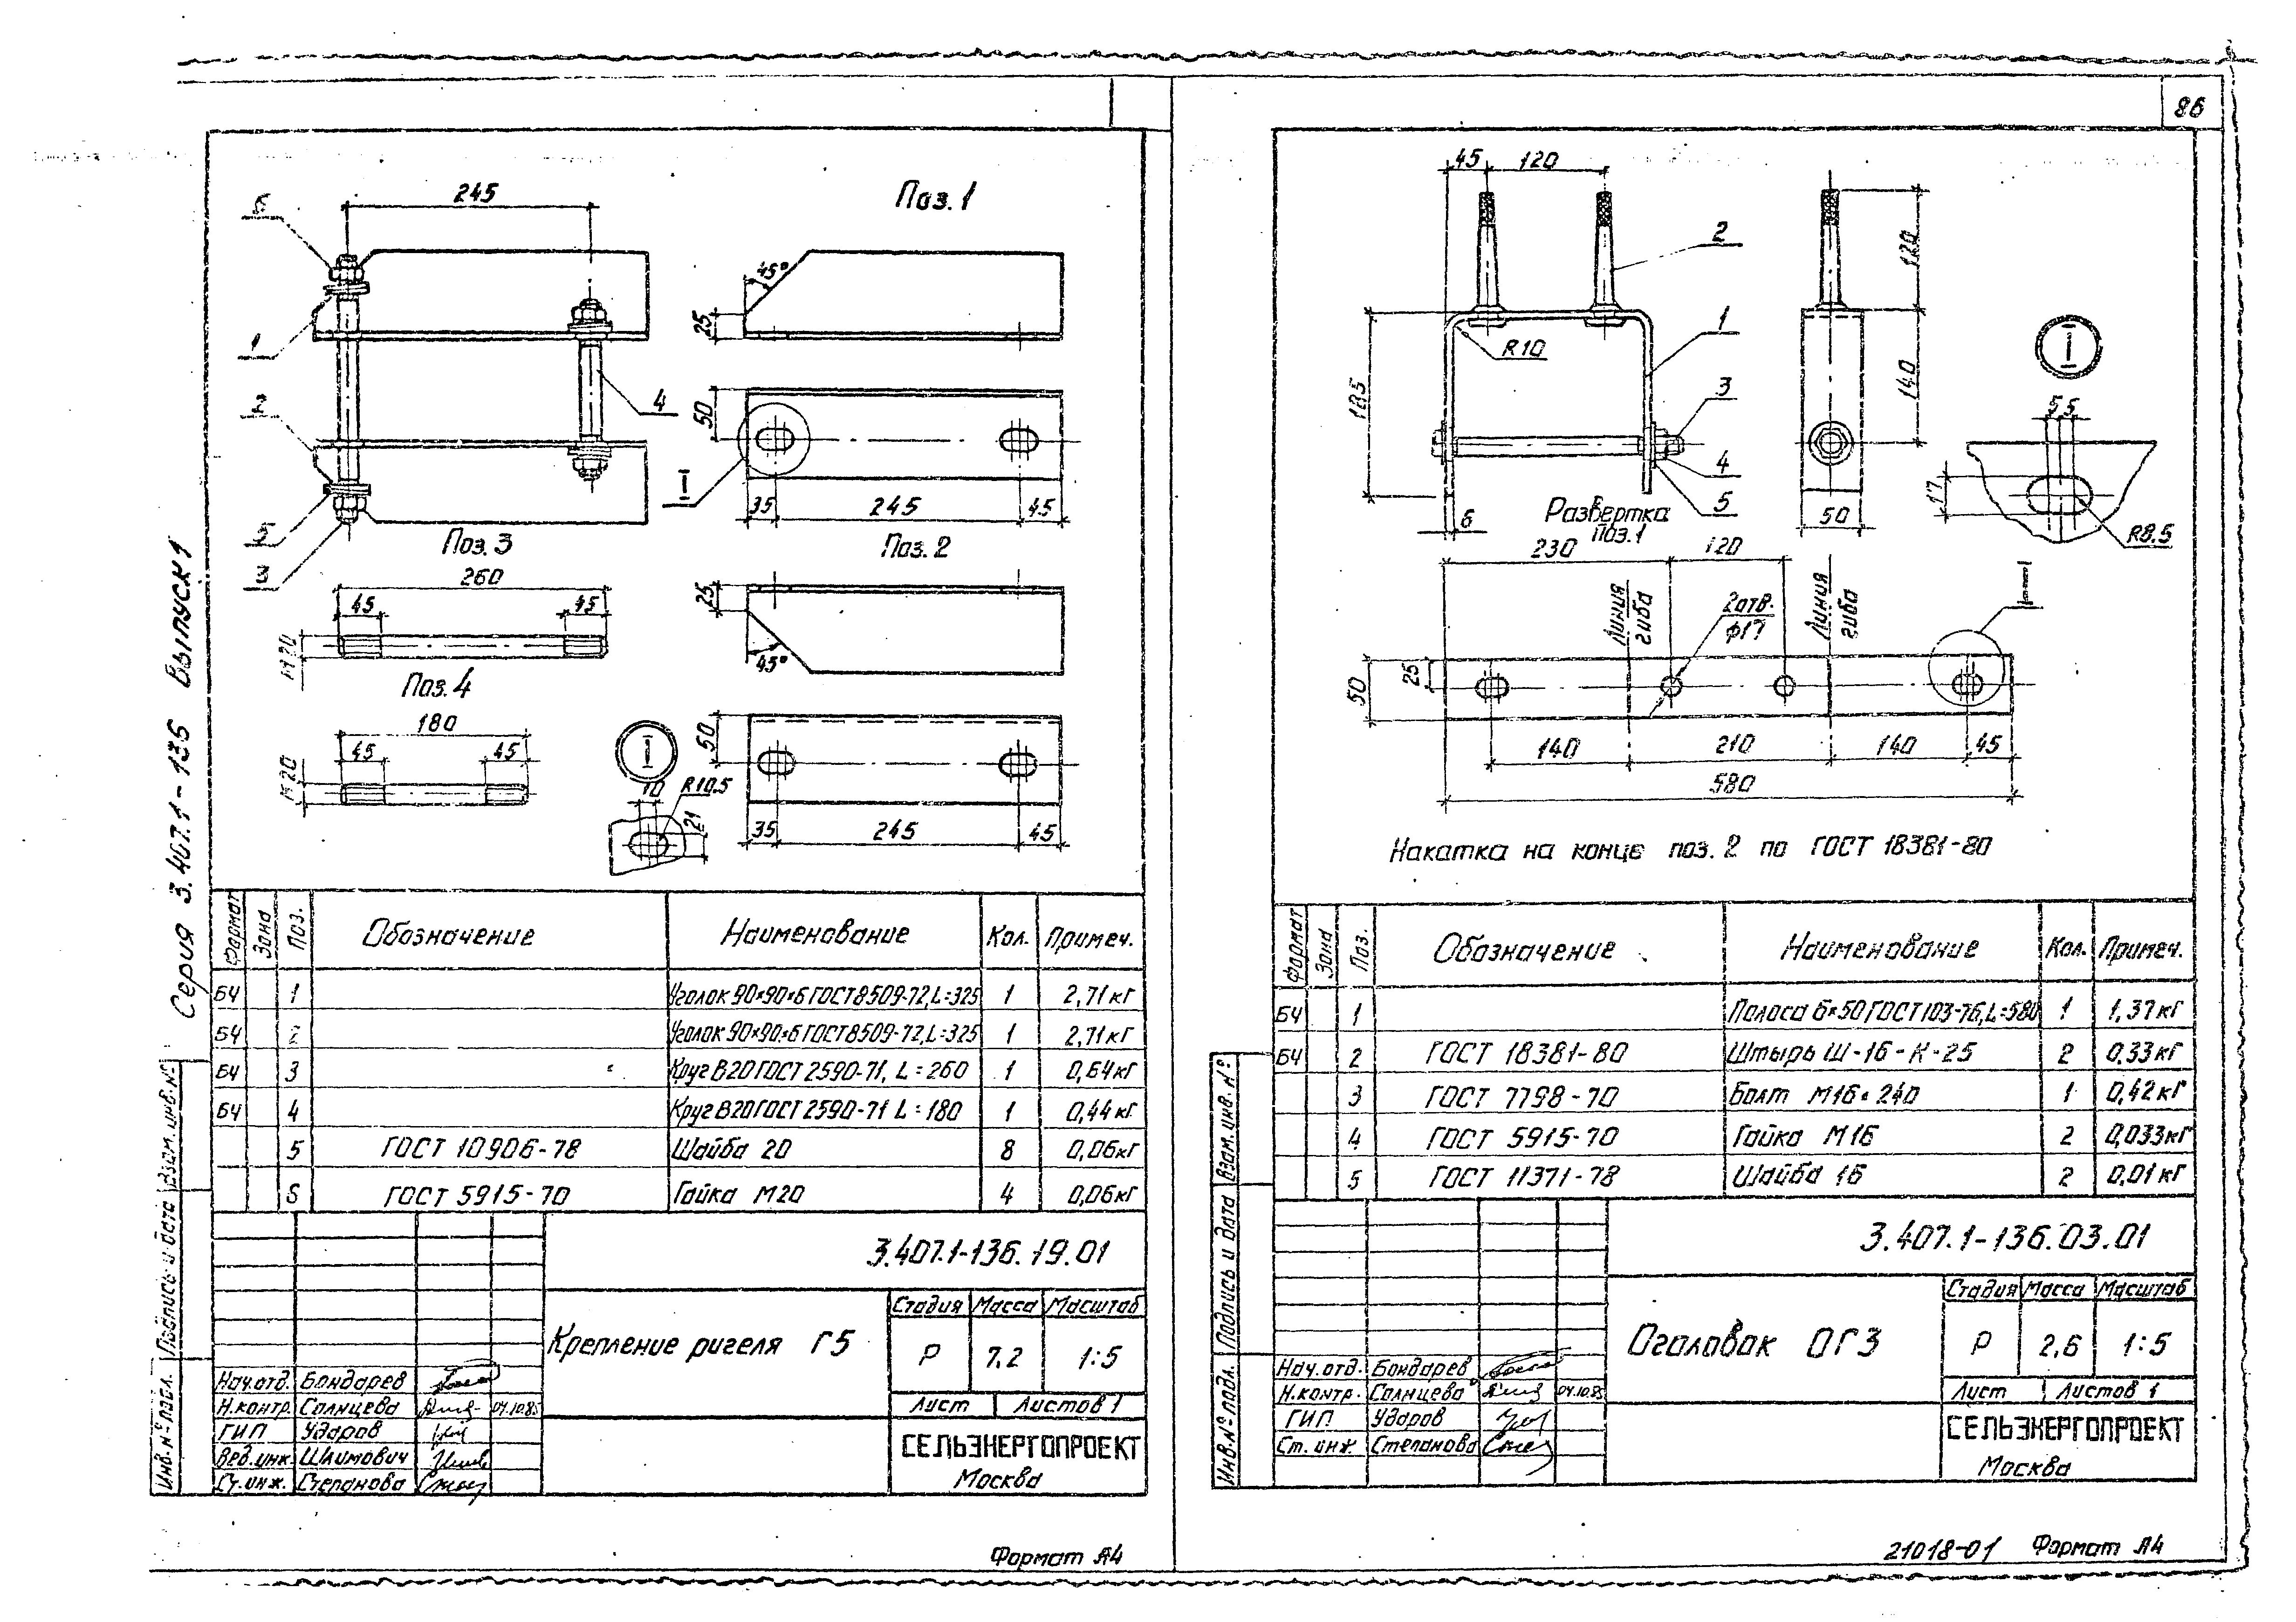 86
Серия 3.407.1-136 Выпуск 1
245
6
1
2
5
3
4
Поз. 1
45°
25
50
I
35
245
45
Поз. 3
260
45
45
М20
Поз. 4
180
45
45
М20
I
10
R10.5
21
Поз. 2
25
45°
50
35
245
45
Формат
Зона
Поз.
Обозначение
Наименование
Кол.
Примеч.
БЧ 1 Уголок 90×90×6 ГОСТ 8509-72, L=325 1 2,71кг
БЧ 2 Уголок 90×90×6 ГОСТ 8509-72, L=325 1 2,71кг
БЧ 3 Круг В20 ГОСТ 2590-71, L=260 1 0,64кг
БЧ 4 Круг В20 ГОСТ 2590-71 L=180 1 0,44кг
5 ГОСТ 10906-78 Шайба 20 8 0,06кг
6 ГОСТ 5915-70 Гайка М20 4 0,06кг
3.407.1-136.19.01
Крепление ригеля Г5
Стадия Масса Масштаб
Р 7.2 1:5
Лист Листов 1
СЕЛЬЭНЕРГОПРОЕКТ
Москва
Нач.отд. Бондарев
Н.контр. Солнцева 04.10.85
ГИП Ударов
Вед.инж. Шлимович
Ст.инж. Степанова
Инв.№ подл. Подпись и дата Взам.инв.№
Формат А4
45
120
2
120
1
R10
185
140
3
4
5
6
50
I
5 5
17
R8.5
Развертка
поз.1
230
120
Линия
гиба
2отв.
ф17
Линия
гиба
I
50
25
140
210
140
45
580
Накатка на конце поз. 2 по ГОСТ 18381-80
Формат
Зона
Поз.
Обозначение
Наименование
Кол.
Примеч.
БЧ 1 Полоса 6×50 ГОСТ 103-76, L=580 1 1,37кг
БЧ 2 ГОСТ 18381-80 Штырь Ш-16-К-25 2 0,33кг
3 ГОСТ 7798-70 Болт М16×240 1 0,42кг
4 ГОСТ 5915-70 Гайка М16 2 0,033кг
5 ГОСТ 11371-78 Шайба 16 2 0,01кг
3.407.1-136.03.01
Оголовок ОГ3
Стадия Масса Масштаб
Р 2,6 1:5
Лист Листов 1
СЕЛЬЭНЕРГОПРОЕКТ
Москва
Нач.отд. Бондарев
Н.контр. Солнцева 04.10.85
ГИП Ударов
Ст. инж Степанова
Инв.№ подл. Подпись и дата Взам.инв.№
21018-01 Формат А4